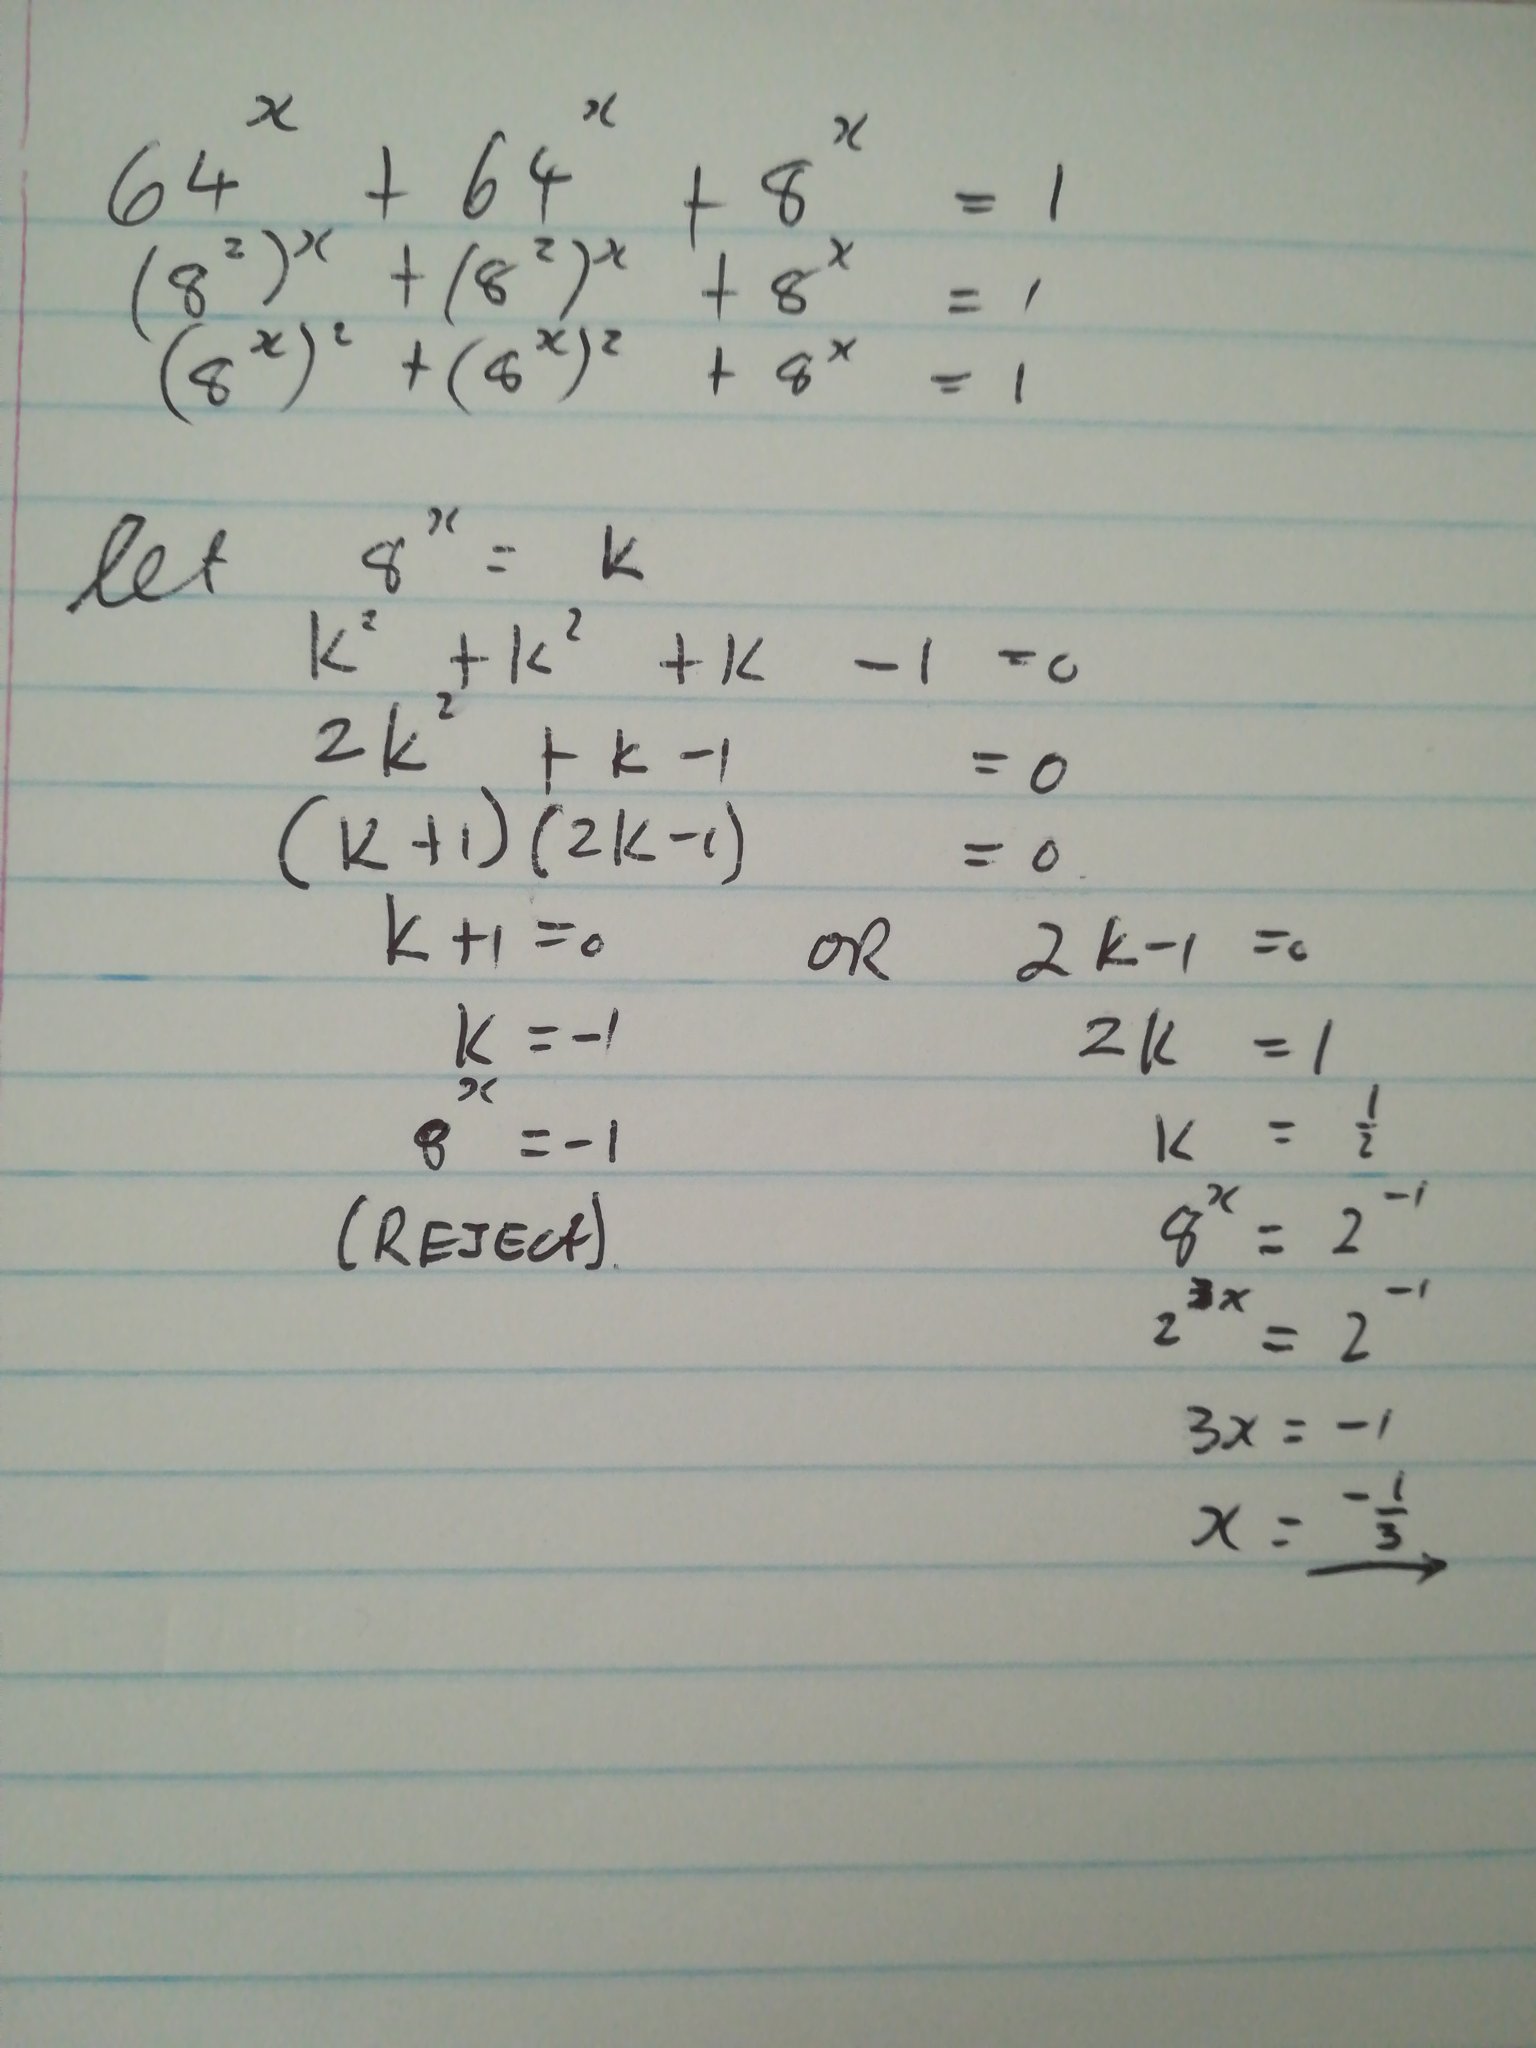 64^x + 64^x + 8^x = 1
(8^2)^x + (8^2)^x + 8^x = 1
(8^x)^2 + (8^x)^2 + 8^x = 1
let 8^x = k
k^2 + k^2 + k - 1 = 0
2k^2 + k - 1 = 0
(k+1)(2k-1) = 0
k+1 = 0 OR 2k-1 = 0
k = -1 2k = 1
8^x = -1 k = 1/2
(REJECT). 8^x = 2^-1
2^3x = 2^-1
3x = -1
x = -1/3